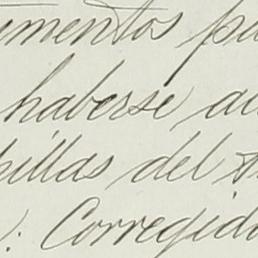 umentos pa
haberse au
pillas del
: Corregido